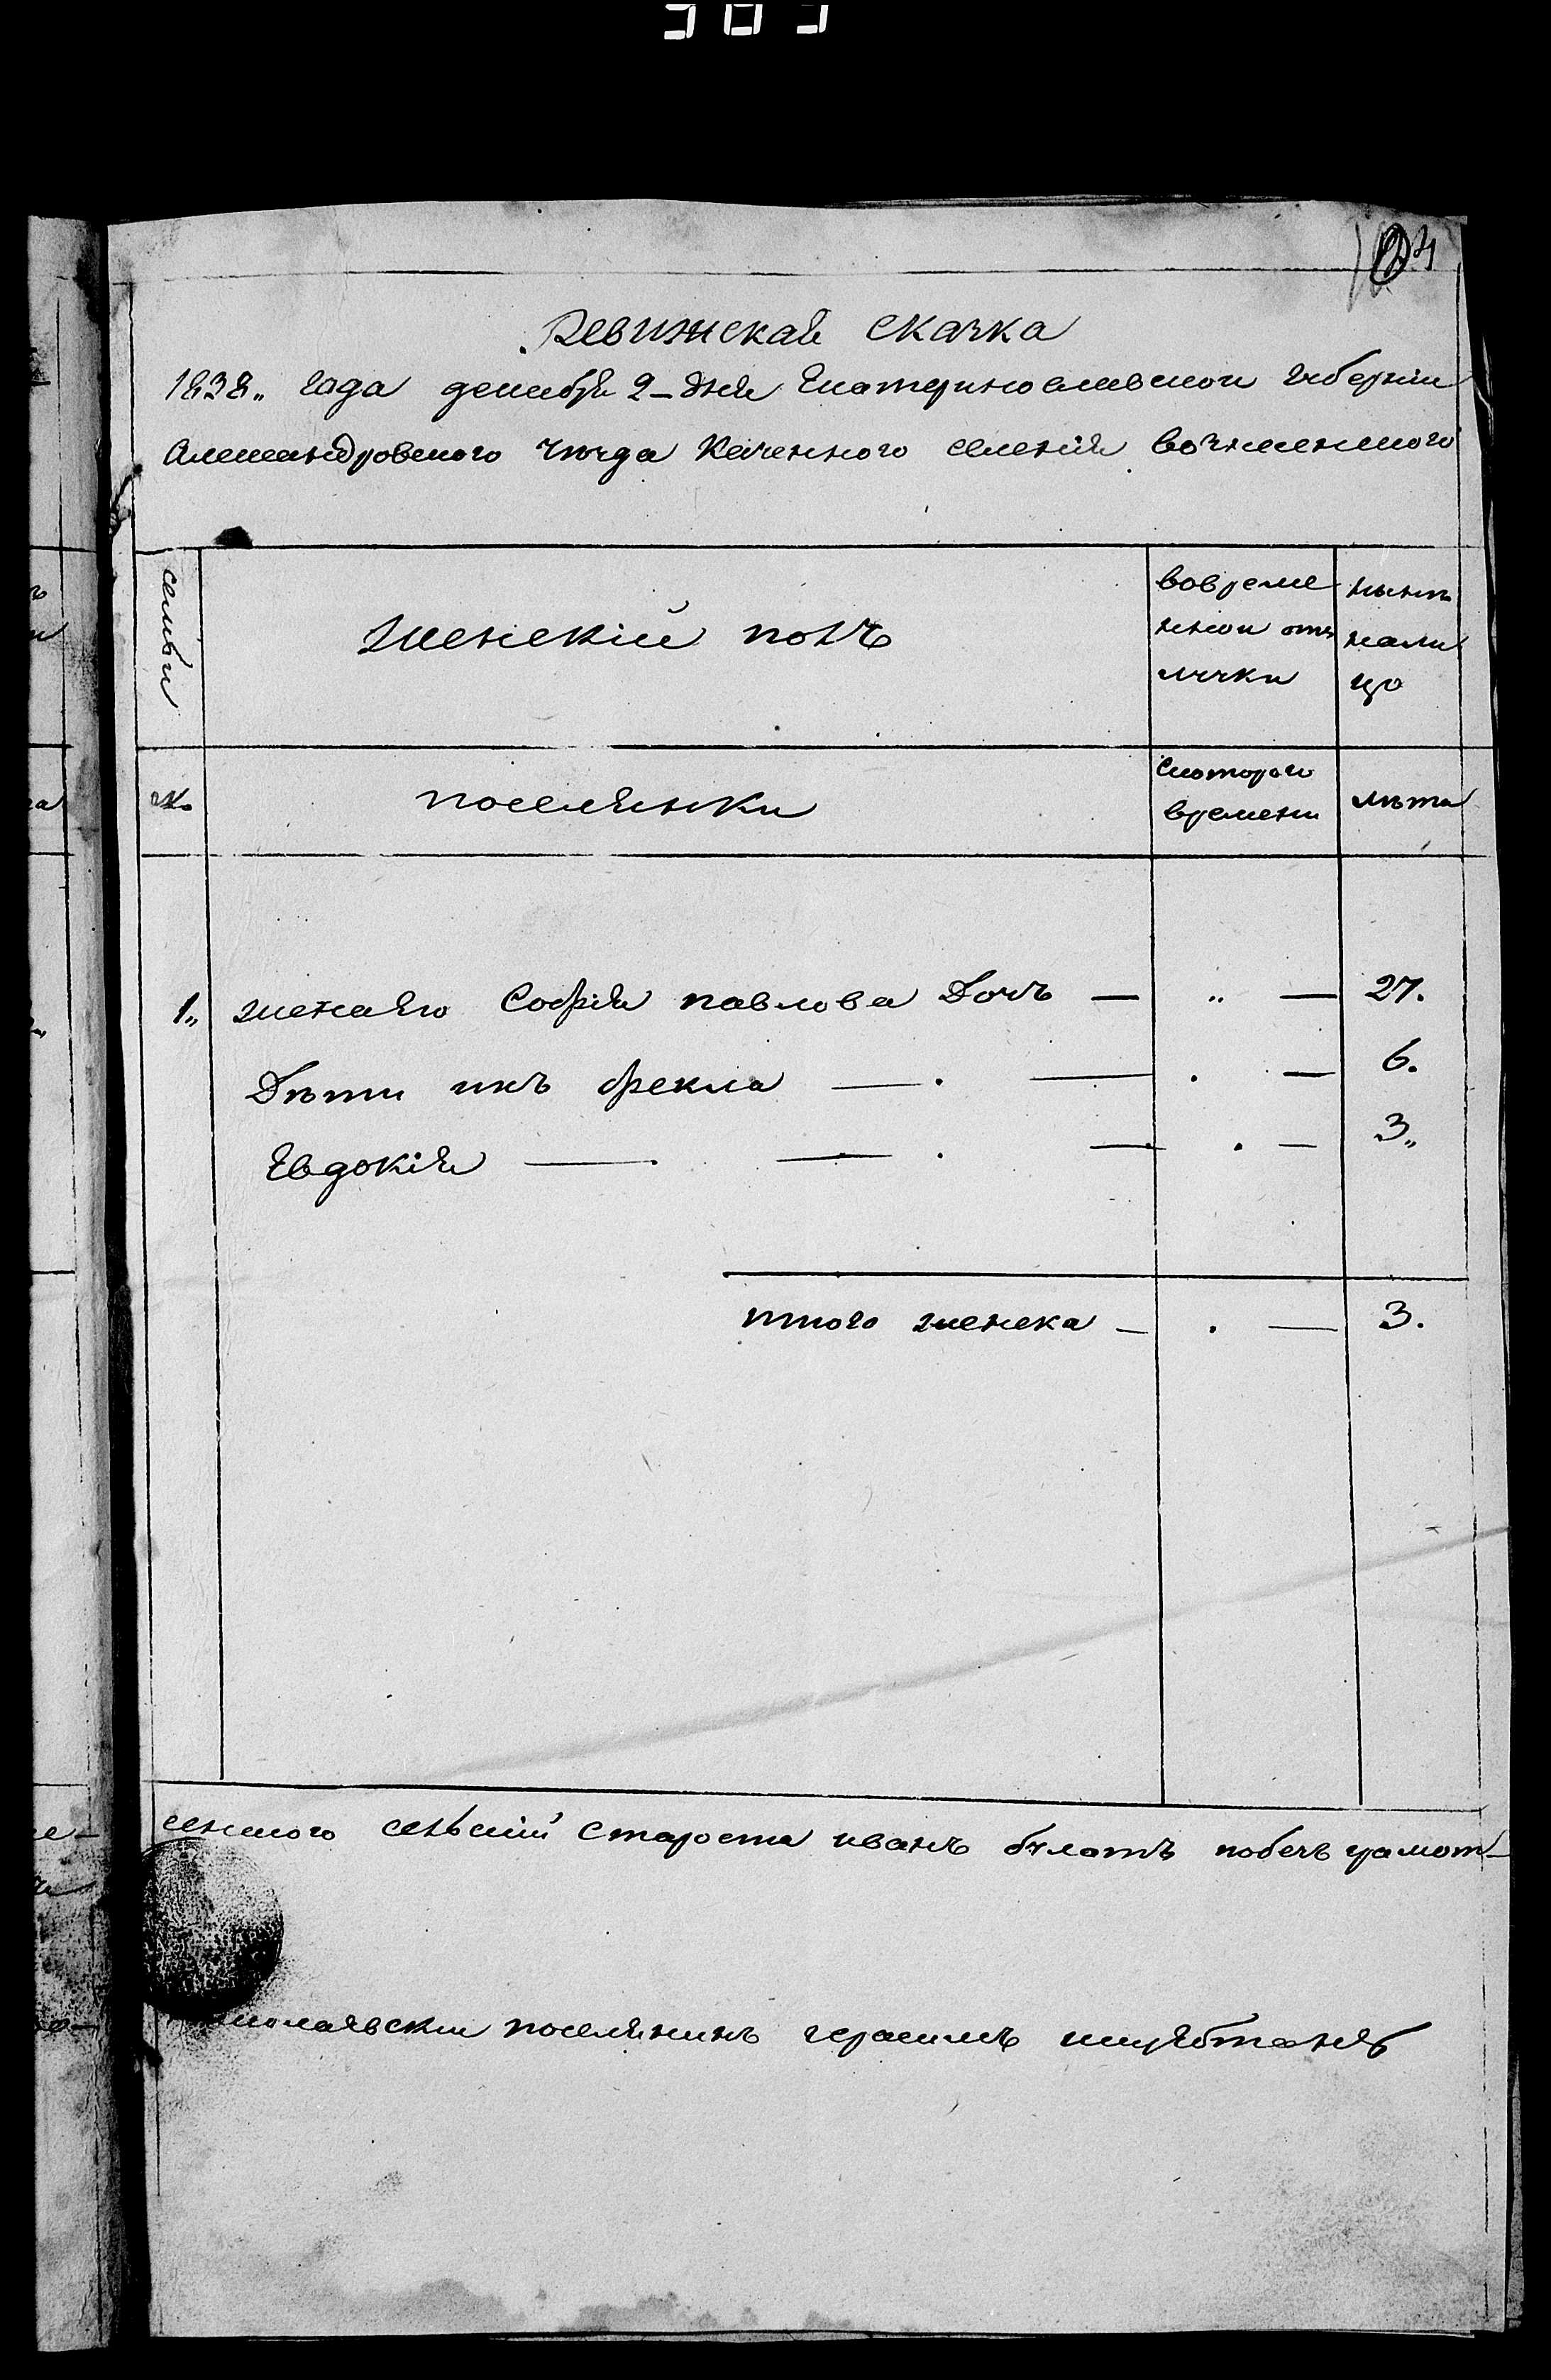 Ревижская скачка
1838„ года декабря 2-дня Екатеринославской губернии
Александровского уѣзда Казенного селения Вознесенского
семьи
женский полъ
вовреме
нной отъ
лучки
нынѣ
нали
цо
№
поселянки
скоторого
времени
лѣта
1„ жена Его София павлова Дочь — „ — 27.
Дѣти ихъ Фекла — . — . — 6.
Евдокия — . — . — . — 3„
итого женска — . — 3.
сенского сельский Староста иванъ булатъ побезъ грамот-
поселянинъ герасимъ